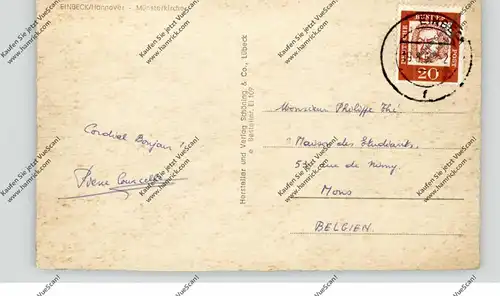 EINBECK/Hannover - Münsterkirche
DEUTSCHE BUNDESPOST
20
Hersteller und Verlag Schöning & Co., Lübeck
Cordial Bonjour
Monsieur Philippe
"Maison des Etudiants"
rue de Nimy
Mons
BELGIEN
Kaufen Sie jetzt VueScan!
www.hamrick.com